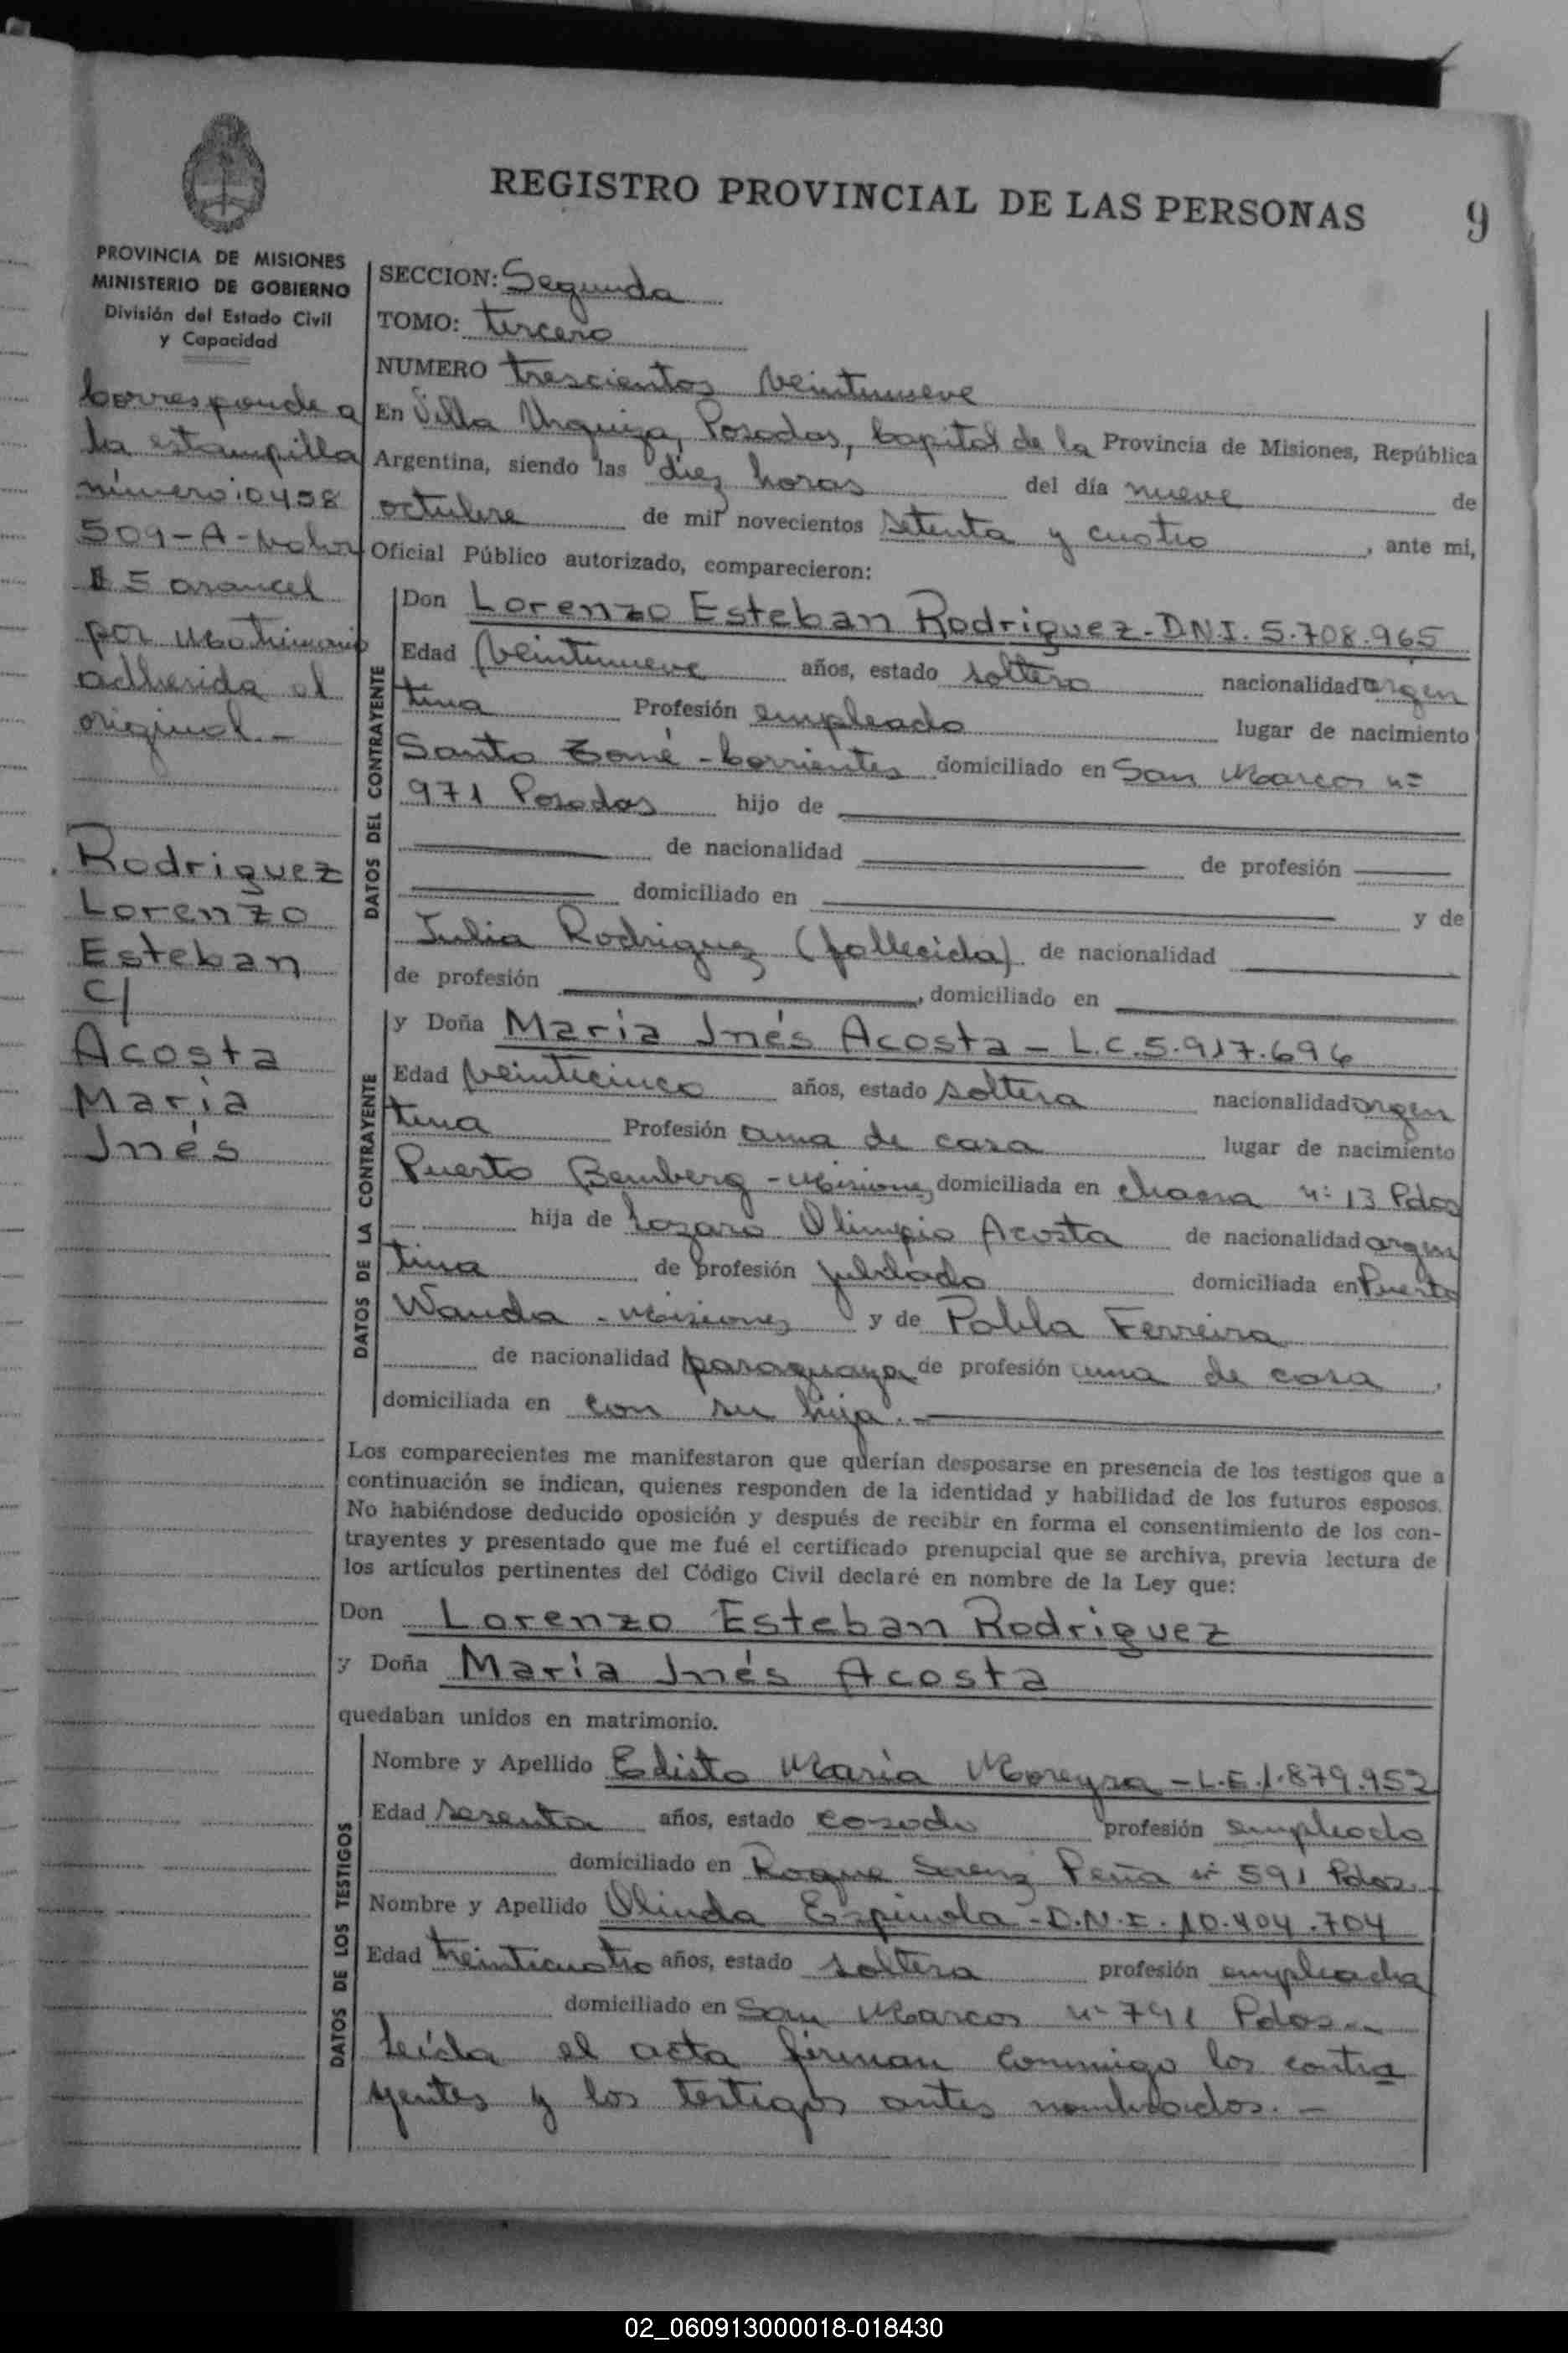 REGISTRO PROVINCIAL DE LAS PERSONAS
9
PROVINCIA DE MISIONES
MINISTERIO DE GOBIERNO
División del Estado Civil
y Capacidad
Corresponde a
la estampilla
número 0458
509-A-Valor
$ 5 arancel
por Matrimonio
adherida al
original.-
Rodriguez
Lorenzo
Esteban
c/
Acosta
María
Inés
SECCION: Segunda
TOMO: tercero
NUMERO trescientos veintinueve
En Villa Urquiza, Posadas, Capital de la Provincia de Misiones, República
Argentina, siendo las diez horas del día nueve de
octubre de mil novecientos setenta y cuatro, ante mi,
Oficial Público autorizado, comparecieron:
DATOS DEL CONTRAYENTE
Don Lorenzo Esteban Rodriguez-D.N.I. 5.708.965
Edad veintinueve años, estado soltero nacionalidad argen
tina Profesión empleado lugar de nacimiento
Santo Tomé-Corrientes domiciliado en San Marcos nº
971 Posadas hijo de
de nacionalidad de profesión
domiciliado en y de
Julia Rodriguez (fallecida) de nacionalidad
de profesión , domiciliado en
DATOS DE LA CONTRAYENTE
y Doña María Inés Acosta - L.C. 5.917.696
Edad veinticinco años, estado soltera nacionalidad argen
tina Profesión ama de casa lugar de nacimiento
Puerto Bemberg - Misiones domiciliada en chacra nº 13 Pdas
hija de Lazaro Olimpio Acosta de nacionalidad argen
tina de profesión jubilado domiciliada en Puerto
Wanda - Misiones y de Pabla Ferreira
de nacionalidad paraguaya de profesión ama de casa,
domiciliada en con su hija.-
Los comparecientes me manifestaron que querían desposarse en presencia de los testigos que a
continuación se indican, quienes responden de la identidad y habilidad de los futuros esposos.
No habiéndose deducido oposición y después de recibir en forma el consentimiento de los con-
trayentes y presentado que me fué el certificado prenupcial que se archiva, previa lectura de
los artículos pertinentes del Código Civil declaré en nombre de la Ley que:
Don Lorenzo Esteban Rodriguez
y Doña María Inés Acosta
quedaban unidos en matrimonio.
DATOS DE LOS TESTIGOS
Nombre y Apellido Edisto María Moreyra - L.E. 1.879.952
Edad sesenta años, estado casado profesión empleado
domiciliado en Roque Saenz Peña nº 591 Pdas.
Nombre y Apellido Olinda Espinola - D.N.I. 10.404.704
Edad treinticuatro años, estado soltera profesión empleada
domiciliado en San Marcos nº 791 Pdas.-
Leída el acta firman conmigo los contra
yentes y los testigos antes nombrados.-
02_060913000018-018430